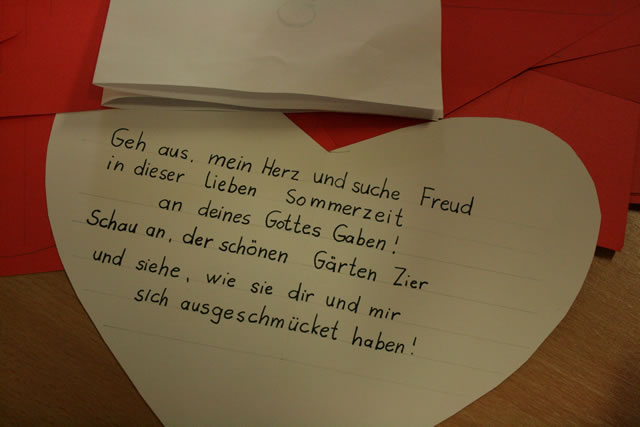 Geh aus, mein Herz und suche Freud
in dieser lieben Sommerzeit
an deines Gottes Gaben!
Schau an, der schönen Gärten Zier
und siehe, wie sie dir und mir
sich ausgeschmücket haben!